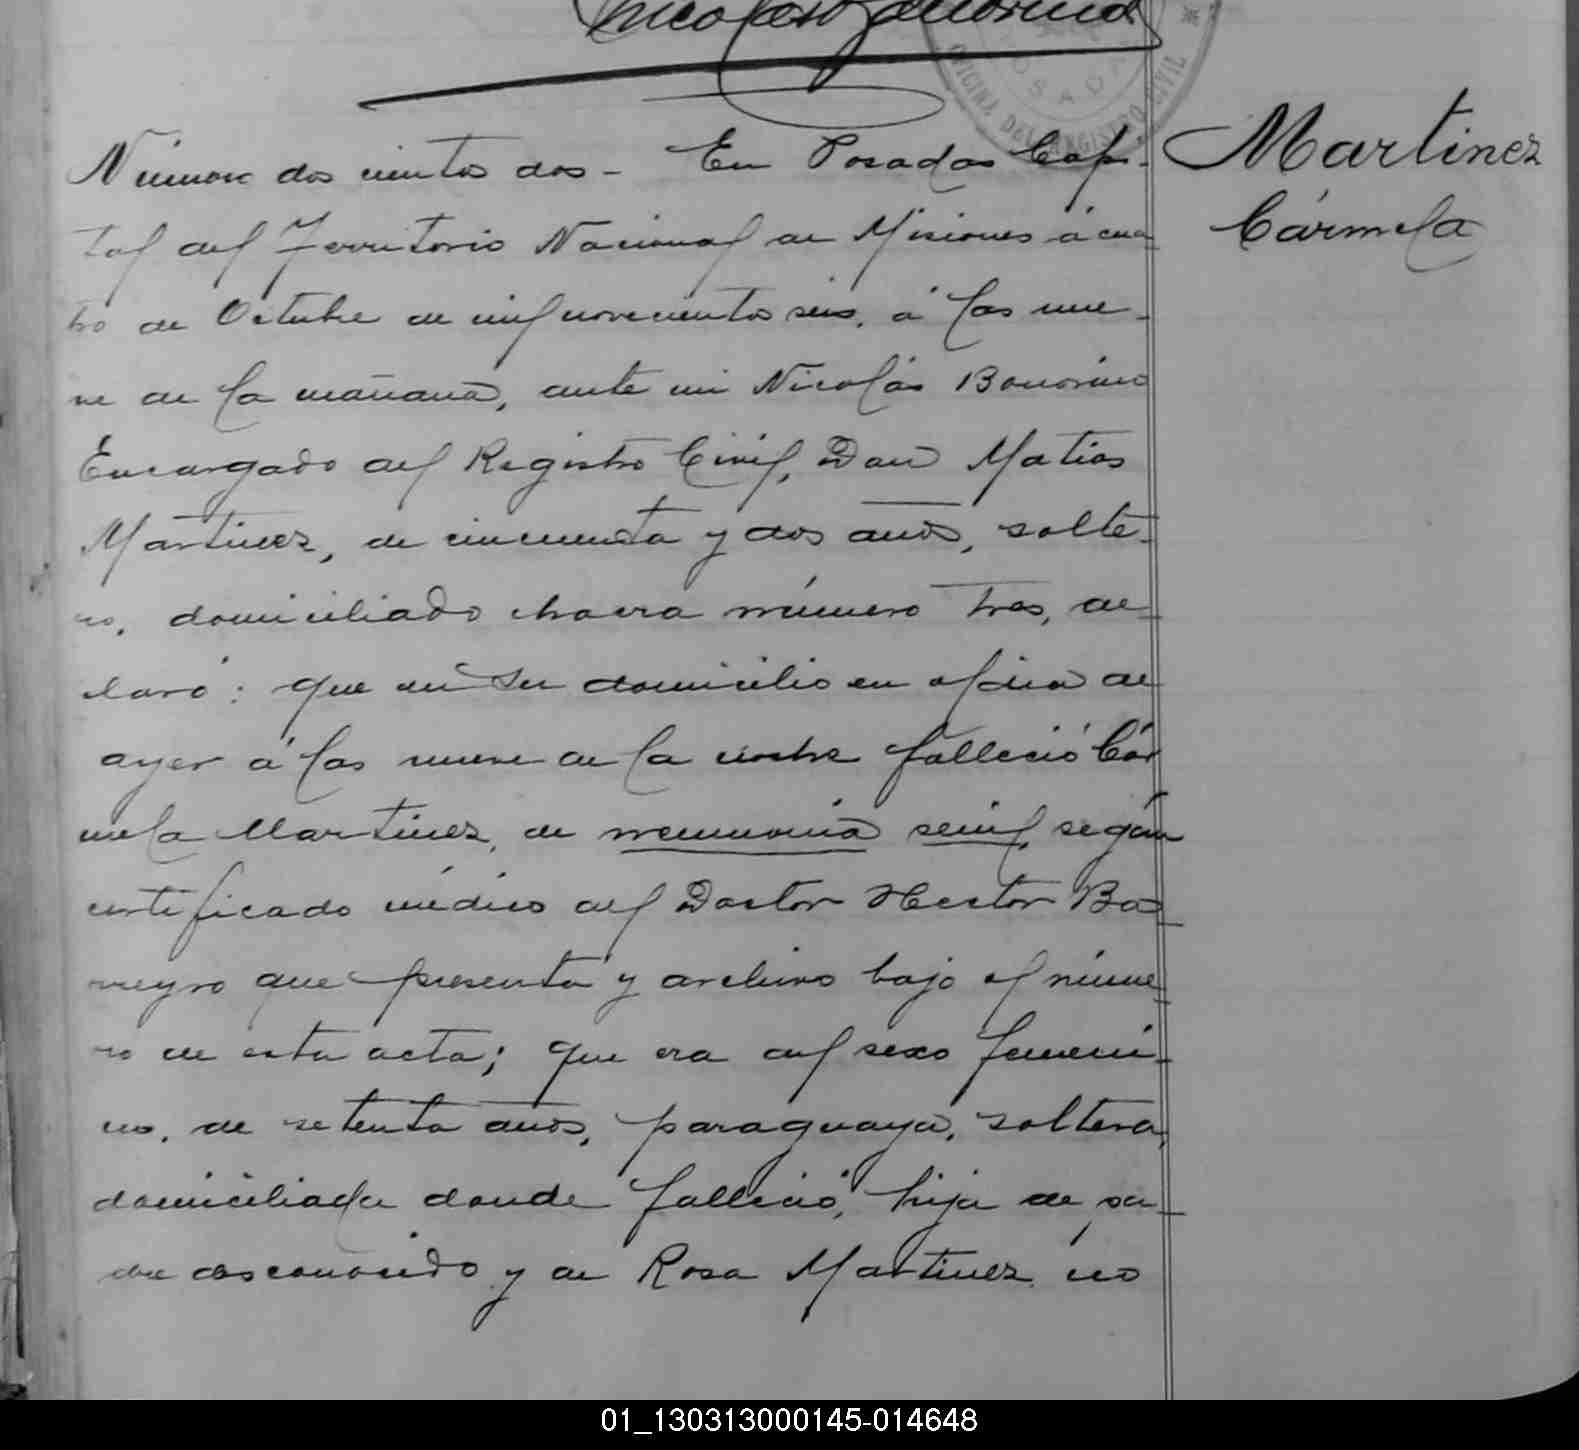 Nicolás Bonorino
OFICINA DEL REGISTRO CIVIL
POSADAS
Martinez
Cármela
Número dos cientos dos - En Posadas Capi-
tal del Territorio Nacional de Misiones á cua
tro de Octubre de mil novecientos seis, á las nue-
ve de la mañana, ante mi Nicolás Bonorino
Encargado del Registro Civil, Don Matias
Martinez, de cincuenta y dos años, solte-
ro, domiciliado chacra número tres, de-
claró: que en su domicilio en el dia de
ayer á las nueve de la noche falleció Cár
mela Martinez, de neumonia senil, según
certificado médico del Doctor Hector Ba-
rreyro que presenta y archivo bajo el núme-
ro de esta acta; que era del sexo femeni-
no, de setenta años, paraguaya, soltera,
domiciliada donde falleció, hija de pa-
dre desconocido y de Rosa Martinez no
01_130313000145-014648